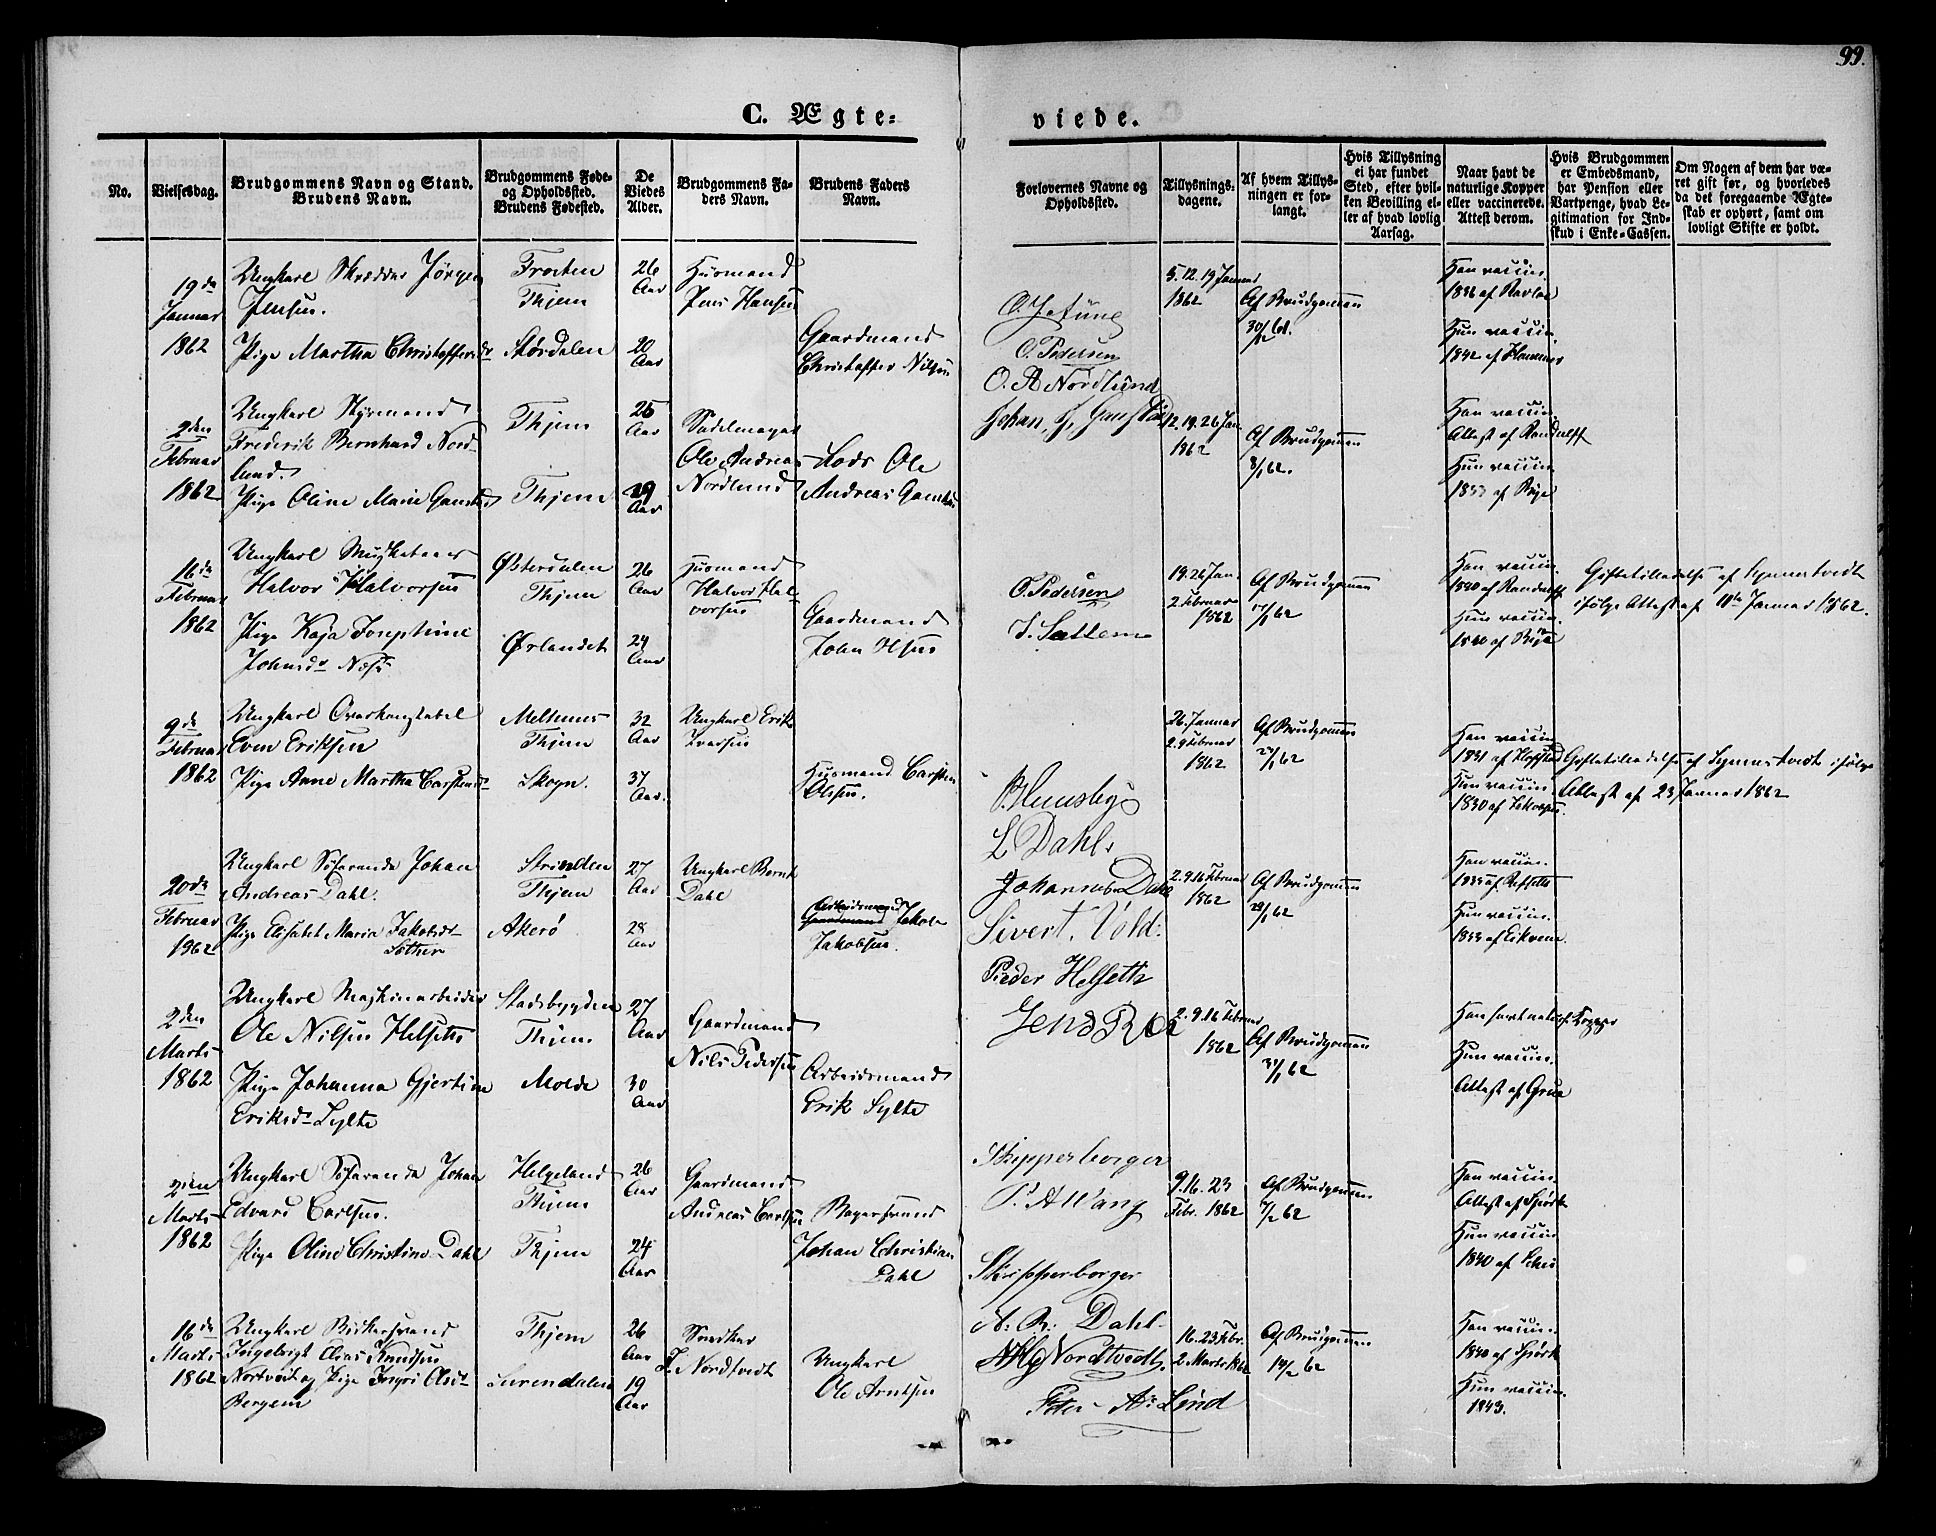 99.
C. Ægte=
viede.
No.
Vielsesdag.
Brudgommens Navn og Stand.
Brudens Navn.
Brudgommens Føde=
og Opholdssted.
Brudens Fødested.
De
Viedes
Alder.
Brudgommens Fa=
ders Navn.
Brudens Faders
Navn.
Forlovernes Navne og
Opholdssted.
Tillysnings=
dagene.
Af hvem Tillys=
ningen er for=
langt.
Hvis Tillysning
ei har fundet
Sted, efter hvil=
ken Bevilling el=
ler af hvad lovlig
Aarsag.
Naar havt de
naturlige Kopper
eller vaccinerede.
Attest derom.
Hvis Brudgommen
er Embedsmand,
har Pension eller
Vartpenge, hvad Le=
gitimation for Ind=
skud i Enke=Cassen.
Om Nogen af dem har væ=
ret gift før, og hvorledes
da det foregaaende Ægte=
skab er ophørt, samt om
lovligt Skifte er holdt.
19de
Januar
1862
Ungkarl Skrædder Jørgen
Jensen.
Pige Martha Christoffersdr
Frosten
Thjem
Størdalen
26
Aar
20
Aar
Husmand
Jens Hansen
Gaardmand
Christoffer Nilsen
O. Pedersen
5. 12. 19 Januar
1862
Af Brudgommen
Han vaccin.
1836 af
Hun vaccin.
1842 af Hammer
2den
Februar
1862
Ungkarl Styrmand
Frederik Bernhard Nord=
lund.
Pige Oline Marie
Thjem
Thjem
25
Aar
29
Aar
Sadelmager
Ole Andreas
Nordlund
Lods Ole
Andreas
O. A Nordlund
Johan
12. 19. 26 Jan.
1862
Af Brudgommen
8/1 62.
Han vaccin.
Attest af Randulff
Hun vaccin.
1833 af
16de
Februar
1862
Ungkarl Musketeer
Halvor Halvorsen
Pige Kaja Josephine
Johnsdr Næss
Østerdalen
Thjem
Ørlandet
26
Aar
24
Aar
Husmand
Halvor Hal=
vorsen
Gaardmand
John
O. Pedersen
J. Sættem
19. 26 Jan.
2. Februar
1862
Af Brudgommen
Han vaccin.
1840 af Randulff
Hun vaccin.
1840 af
Giftetilladelse af
ifølge Attest af Januar 1862.
9de
Februar
1862
Ungkarl Overkonstabel
Even Eriksen
Pige Anne Martha Carstensdr
Melhuus
Thjem
Skogn.
32
Aar
37
Aar.
Ungkarl Erik
Husmand Carsten
Olsen.
L Dahl.
26. Januar
2. 9 Februar
1862
Af Brudgommen
Han vaccin.
1831 af
Hun vaccin.
1830 af
Giftetilladelse af ifølge
Attest af 23 Januar 1862
20de
Februar
1862
Ungkarl Søfarende Johan
Andreas Dahl.
Pige Elisabet Maria Jakobsdr
Strinden
Thjem
Akerø
27
Aar
28
Aar
Ungkarl Bernt
Dahl
Arbeidsmand
Gaardmand Jakob
Jakobsen.
Johannes Dahl
Sivert. Vold.
2. 9. 16 Februar
1862
Af Brudgommen
29/1 62.
Han vaccin.
1835 af
Hun vaccin.
af Eikrem.
2den
Marts
1862
Ungkarl Maskinarbeider
Ole Nilsen Helseth
Pige Johanna Gjertine
Eriksdr Sylte
Stadsbygden
Thjem
Molde
27
Aar
30
Aar
Gaardmand
Nils Pedersen
Arbeidsmand
Erik Sylte
Peder Helseth
Jens
2. 9. 16 Februar
1862
Af Brudgommen
Han havt naturl. Kopper
Hun vaccin.
Attest af Grua
2den
Marts
1862
Ungkarl Søfarende Johan
Edvard Carlsen.
Pige Oline Christine Dahl
Helgeland
Thjem
Thjem
26
Aar
24
Aar
Gaardmand
Andreas Carlsen
Bagersvend
Johan Christian
Dahl
Skipperborger
P. A Wang
Skipperborger
A. B. Dahl.
9. 16. 23
Febr. 1862
Af Brudgommen
7/2 62
Han vaccin.
Attest af
Hun vaccin.
1840 af
16de
Marts
1862
Ungkarl
Ingebrigt Elias Knudsen
Nortvedt og Pige Ingri Olsdr
Bergem
Thjem
Surendalen
26
Aar
19
Aar
Snedker
Nordtvedt
Ungkarl
Ole Arntsen
Nordtvedt.
Peter A: Lind
16. 23 Febr.
2 Marts 1862
Af Brudgommen
14/2 62
Han vaccin.
1840 af
Hun vaccin.
1843.